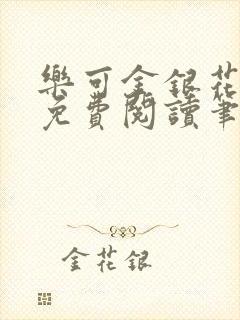 樂可金銀花
免費閱讀筆
金花銀